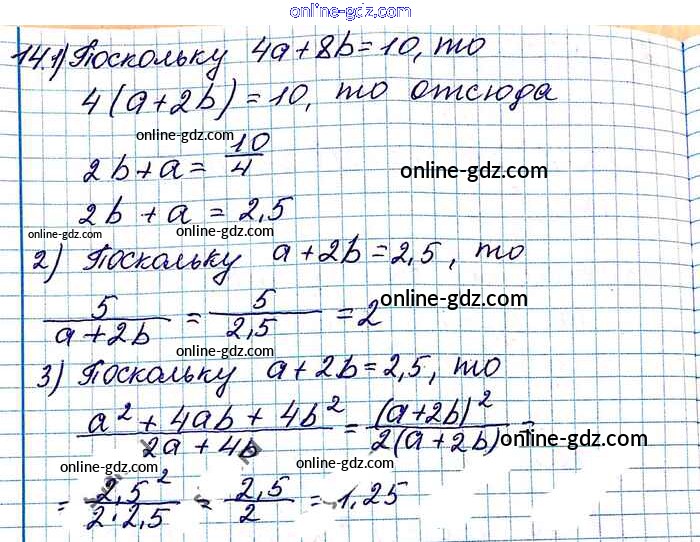 online-gdz.com
14.1) Поскольку 4a+8b=10, то
4(a+2b)=10, то отсюда
online-gdz.com
2b+a= 10/4
online-gdz.com
2b+a=2,5
online-gdz.com
online-gdz.com
2) Поскольку a+2b=2,5, то
5/(a+2b) = 5/2,5 = 2
online-gdz.com
online-gdz.com
3) Поскольку a+2b=2,5, то
(a²+4ab+4b²)/(2a+4b) = (a+2b)²/2(a+2b) =
online-gdz.com
online-gdz.com
online-gdz.com
= 2,5²/2·2,5 = 2,5/2 = 1,25
online-gdz.com